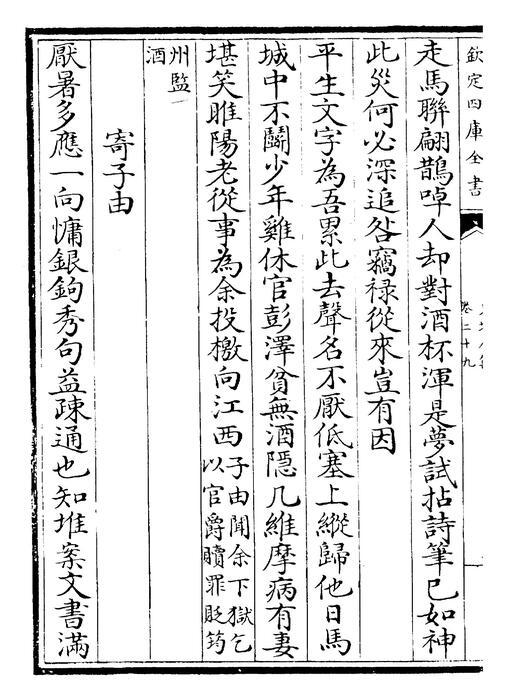 欽定四庫全書
卷二十九
走馬聯翩鵲啅人却對酒杯渾是夢試拈詩筆已如神
此災何必深追咎竊禄從來豈有因
平生文字為吾累此去聲名不厭低塞上縱歸他日馬
城中不鬬少年雞休官彭澤貧無酒隠几維摩病有妻
堪笑睢陽老從事為余投檄向江西子由聞余下獄乞以官爵贖罪貶筠
州監酒
寄子由
厭暑多應一向慵銀鉤秀句益疎通也知堆案文書滿